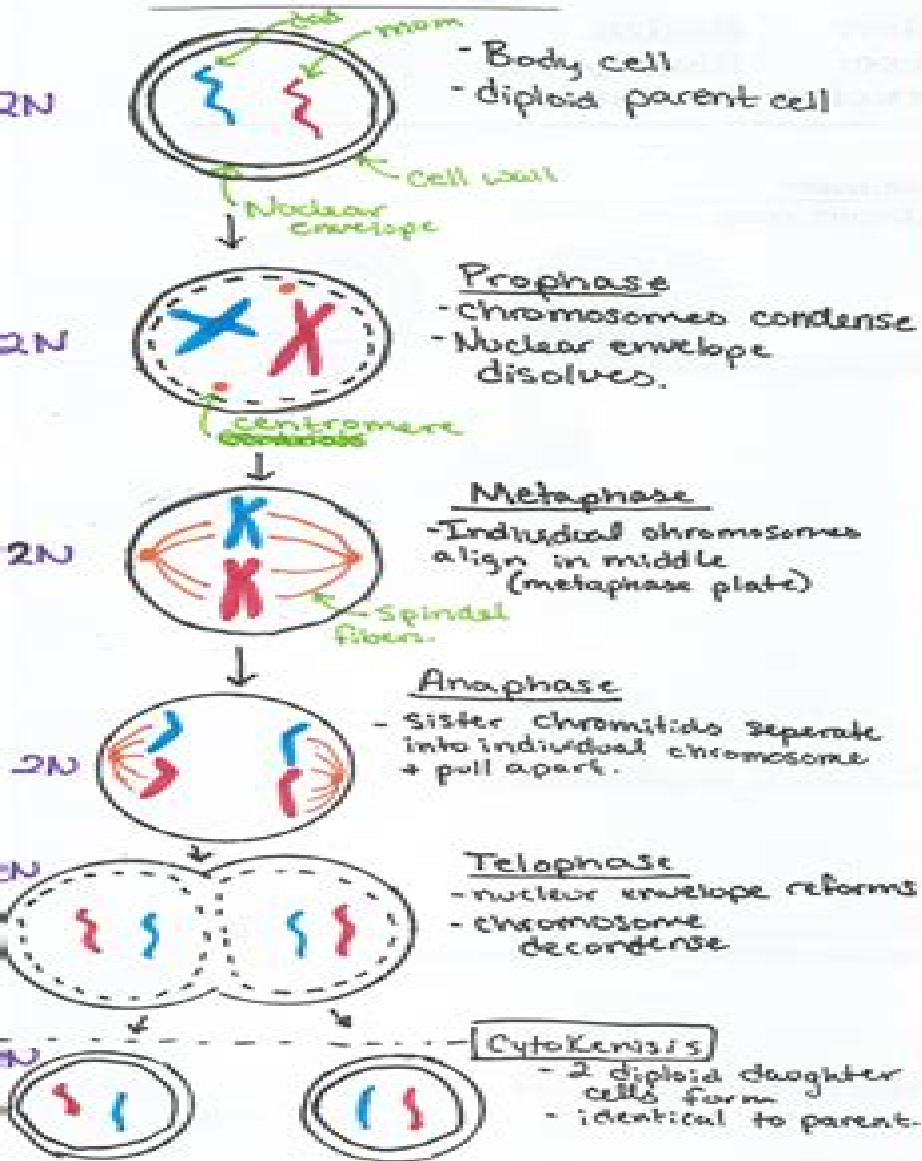 dad
mom
2N
- Body cell
- diploid parent cell
Cell wall
Nuclear
envelope
2N
Prophase
- Chromosomes condense
- Nuclear envelope
disolves.
centromere
2N
Metaphase
- Individual chromosomes
align in middle
(metaphase plate)
Spindel
fibers.
2N
Anaphase
- sister chromitids seperate
into individual chromosome
+ pull apart.
Telophase
- nuclear envelope reforms
- chromosome
decondense
Cytokenisis
- 2 diploid daughter
cells form
- identical to parent.